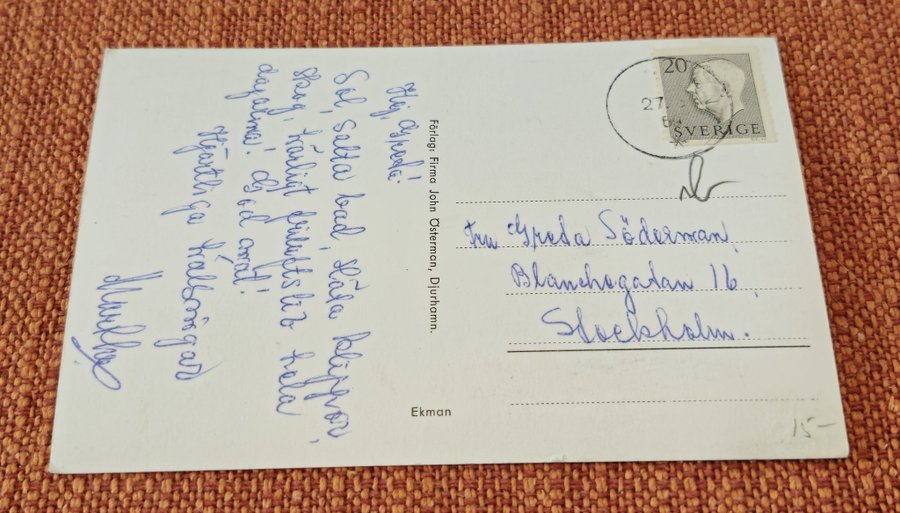 Hej, Greda!
Sol, salta bad, släta klippor,
skog, härligt friluftsliv hela
dagarna! God mat!
Hjärtliga hälsningar
Förlag: Firma John Österman, Djurhamn.
Ekman
20
SVERIGE
27
Fru Greda Söderman,
Blanchegatan 16,
Stockholm.
15-